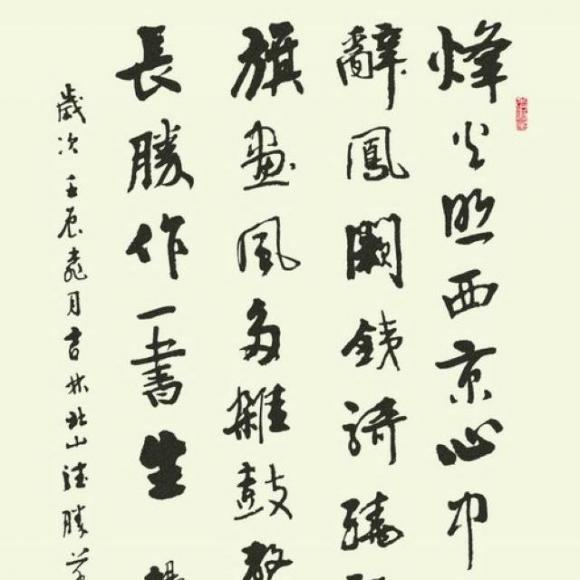 烽火照西京心中
辭鳳闕銕騎繞
旗畫風多雜鼓聲
長勝作一書生
歲次壬辰月吉林北山德勝